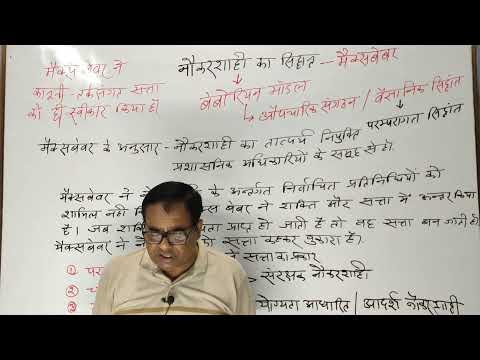 मैक्स वेबर ने
कानूनी-तर्कसंगत सत्ता
को ही स्वीकार किया है।
नौकरशाही का सिद्धांत - मैक्सवेबर
वेबोरियन मॉडल
औपचारिक संगठन / वैज्ञानिक सिद्धांत
परम्परागत सिद्धांत
मैक्सवेबर के अनुसार - नौकरशाही का तात्पर्य नियुक्त
प्रशासनिक अधिकारियों के समूह से है।
मैक्सवेबर ने के अन्तर्गत निर्वाचित प्रतिनिधियों को
शामिल नहीं वेबर ने शक्ति और सत्ता में अन्तर किया
है। जब प्राप्त हो जाती है तो वह सत्ता बन जाती है।
मैक्सवेबर ने सत्ता कहकर पुकारा है।
सत्ता का प्रकार
① संरक्षक नौकरशाही
②
योग्यता आधारित / आदर्श नौकरशाही